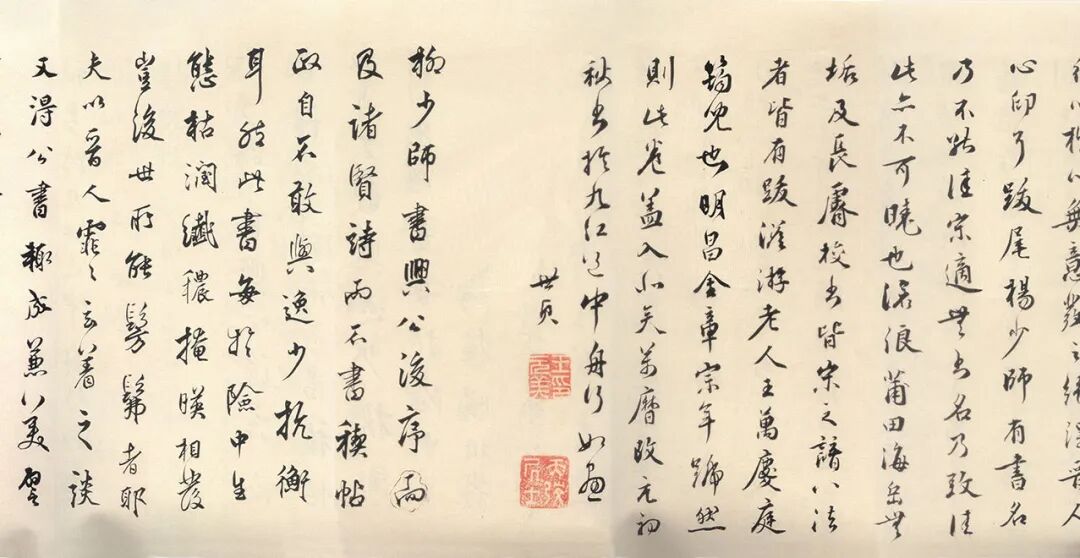 無意發之
心印耳跋尾楊少師有書名
乃不能佳宗適無書名乃致佳
此亦不可曉也滄浪莆田海岳無
垢及長睿校書皆宋之諳八法
者皆有跋溪游老人王萬慶庭
筠兒也明昌金章宗年號然
則此卷蓋入北矣萬曆改元初
秋書於九江道中舟行如畫
世貞
柳少師書興公後序而
及諸賢詩而不書禊帖
政自不敢與逸少抗衡
耳然此書每於險中生
態枯潤纖穠掩映相發
豈後世所能髣髴者耶
夫以晉人霏霏玄著之談
又得公書輒成兼美